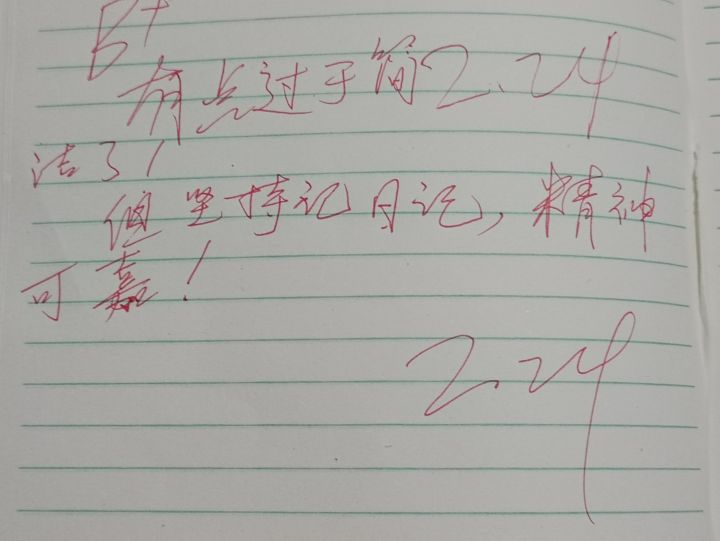 B+
有点过于简2.24
洁了!
但坚持记日记，精神
可嘉！
2.24